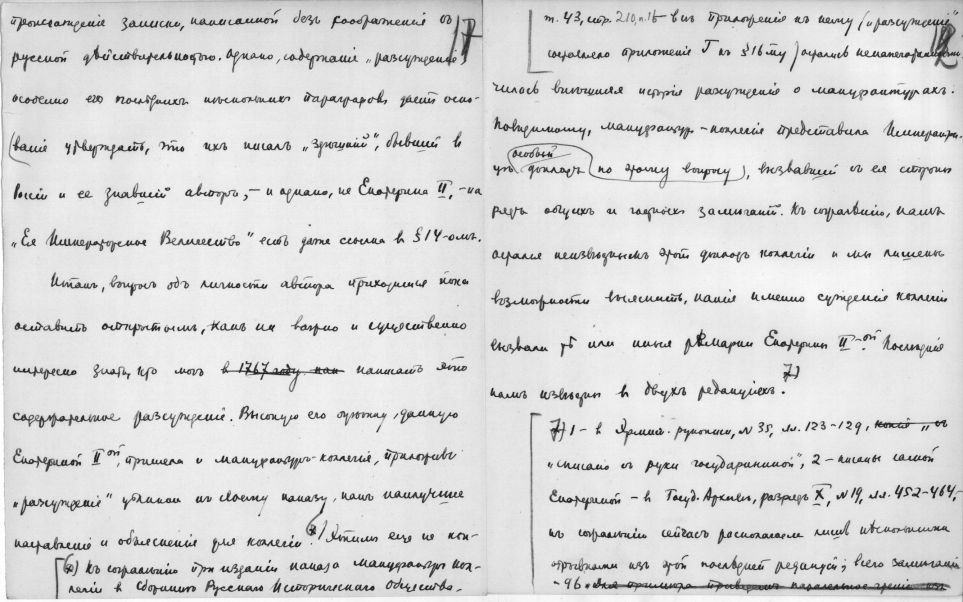 происхожденіе записки, написанной безъ соображенія съ
русской дѣйствительностью. Однако, содержаніе „разсужденія",
особенно его послѣднихъ нѣсколькихъ параграфовъ даетъ осно-
ваніе утверждать, что ихъ писалъ „здѣшній", бывшій в
Россіи и ее знавшій авторъ, – и однако, не Екатерина II, – на
„Ея Императорское Величество" есть даже ссылка в § 14-омъ.
Итакъ, вопросъ объ личности автора приходится пока
оставить открытымъ, какъ ни важно и существенно
интересно знать, кто могъ в 1767 году написать это
содержательное разсужденіе. Высокую его оцѣнку, данную
Екатериной II ой, приняла и мануфактуръ-коллегія, приложивъ
„разсужденія" цѣликомъ къ своему наказу, какъ наилучшее
наставленіе и объясненіе для коллегіи. *) Этимъ еще не кон-
*) Къ сожалѣнію при изданіи наказа мануфактуръ кол-
легіи в Сборникѣ Русскаго Историческаго Общества,
17
т. 43, стр. 210, п. 16 всѣ приложенія къ нему („разсужденіе"
составляло приложеніе Г къ § 16-му) остались ненапечатанными
12
чилась внѣшняя исторія разсужденія о мануфактурахъ.
Повидимому, мануфактур-коллегія представила Императри-
цѣ особый докладъ (по этому вопросу), вызвавшій съ ея стороны
рядъ общихъ и частныхъ замѣчаній. Къ сожалѣнію, намъ
остался неизвѣстнымъ этотъ докладъ коллегіи и мы лишены
возможности выяснить, какія именно сужденія коллегіи
вызвали тѣ или иныя ремарки Екатерины II-ой. Послѣднія
намъ извѣстны в двухъ редакціяхъ. 7)
7) 1 – в Эрмит. рукописи, № 35, лл. 123-129, копія „съ
„списано съ руки государыниной", 2 – писаны самой
Екатериной – в Госуд. Архивѣ, разрядъ X, № 19, лл. 452-464, –
къ сожалѣнію сейчасъ располагаемъ лишь нѣсколькими
отрывками изъ этой послѣдней редакціи; всего замѣчаній
– 96. Для примѣра приведемъ параллельное чтеніе